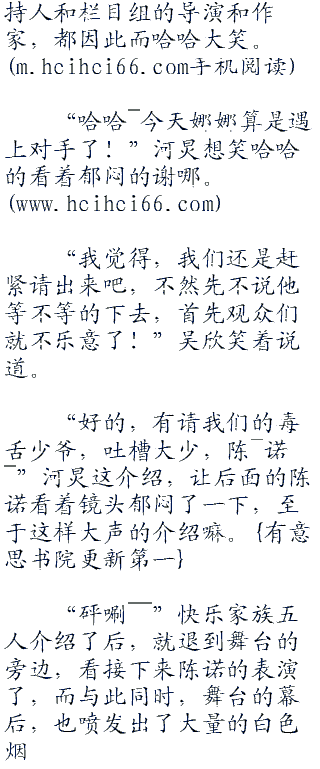 持人和栏目组的导演和作
家，都因此而哈哈大笑。
(m.hcihci66.com手机阅读)
“哈哈¯今天娜娜算是遇
上对手了！”河炅想笑哈哈
的看着郁闷的谢哪。
(www.hcihci66.com)
“我觉得，我们还是赶
紧请出来吧，不然先不说他
等不等的下去，首先观众们
就不乐意了！”吴欣笑着说
道。
“好的，有请我们的毒
舌少爷，吐槽大少，陈¯诺
¯”河炅这介绍，让后面的陈
诺看着镜头郁闷了一下，至
于这样大声的介绍嘛。{有意
思书院更新第一}
“砰唰¯¯”快乐家族五
人介绍了后，就退到舞台的
旁边，看接下来陈诺的表演
了，而与此同时，舞台的幕
后，也喷发出了大量的白色
烟